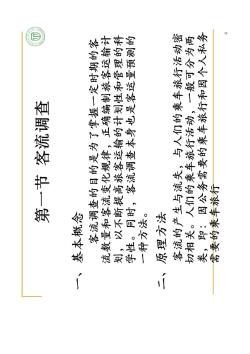 第一节 客流调查
一、基本概念
客流调查的目的是为了掌握一定时期的客
流数量和客流变化规律，正确编制旅客运输计
划，以不断提高旅客运输的计划性和管理的科
学性。同时，客流调查本身也是客运量预测的
一种方法。
二、原理方法
客流的产生与流失，与人们的乘车旅行活动密
切相关。人们的乘车旅行活动，一般可分为两
类，即：因公务需要的乘车旅行和因个人私务
需要的乘车旅行